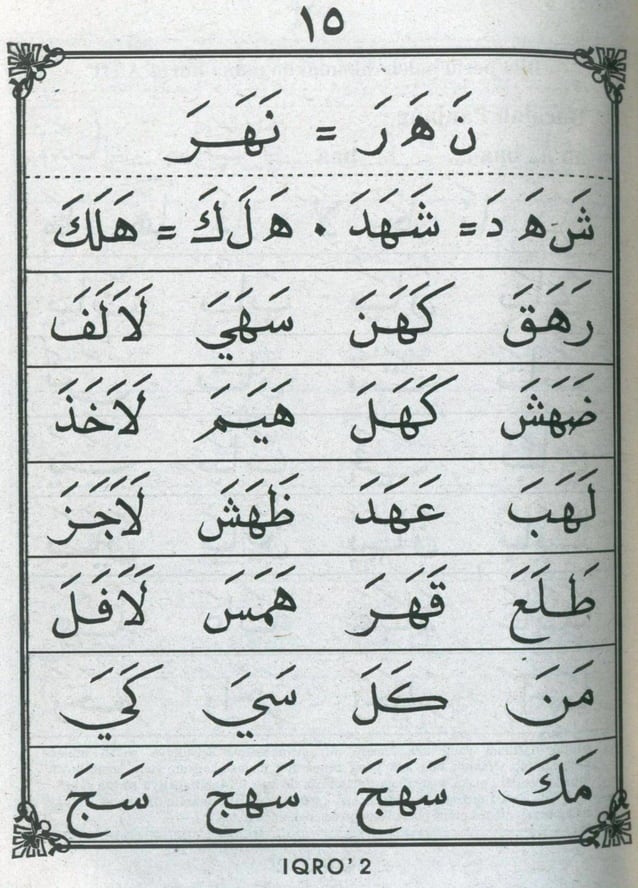 ١٥
نَ هَ رَ = نَهَرَ
شَ هَ دَ = شَهَدَ . هَ لَ كَ = هَلَكَ
رَهَقَ كَهَنَ سَهَيَ لَالَفَ
ضَهَشَ كَهَلَ هَيَمَ لَاخَذَ
لَهَبَ عَهَدَ ظَهَشَ لَاجَزَ
طَلَعَ قَهَرَ هَمَسَ لَافَلَ
مَنَ كَلَ سَيَ كَيَ
مَكَ سَهَجَ سَهَجَ سَجَ
IQRO' 2